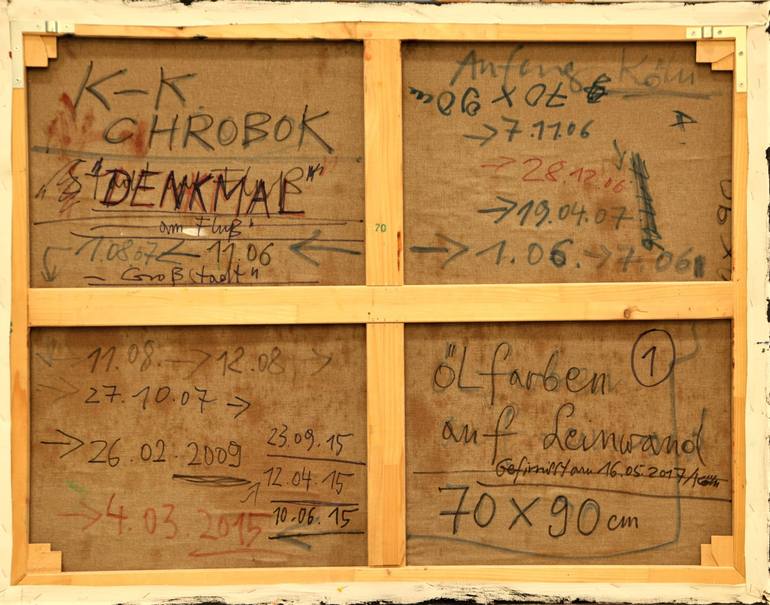 K-K.
CHROBOK
"DENKMAL"
am Fluß"
1.08.07 ← 11.06 ←
- Großstadt"
Anfang Köln
70 x 90 cm
→ 7.11.06
→ 28.12.06
→ 19.04.07
→ 1.06. → 7.06
70
11.08. → 12.08 →
27.10.07 →
→ 26.02.2009
→ 4.03.2015
23.09.15
12.04.15
10.06.15
ÖLfarben 1
auf Leinwand
Gefirnisst am 16.05.2017/Köln
70 X 90 cm